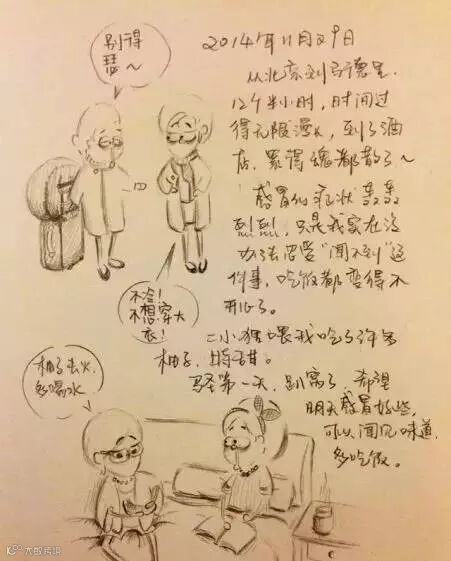 别得
瑟～
2014年11月29日
从北京到马德里,
12个半小时,时间过
得无限漫长,到了酒
店,累得魂都散了～
感冒的症状轰轰
烈烈,只是我实在没
办法忍受“闻不到”这
件事,吃饭都变得不
开心了。
不冷!
不想穿大
衣!
二小姐喂我吃了许多
柚子,特甜。
第一天,趴窝了,希望
明天感冒好些,
可以闻见味道,
多吃饭。
柚子去火,
多喝水